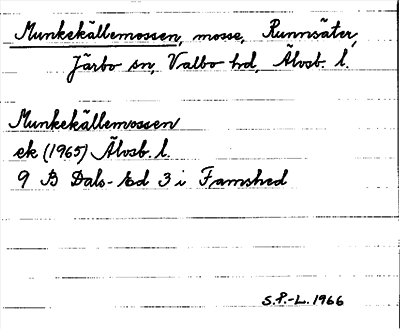 Munkekällemossen, mosse, Runnsäter,
Järbo sn, Valbo hd, Älvsb. l.
Munkekällemossen
ek (1965) Älvsb. l.
9 B Dals-Ed 3 i Famshed
S.P.-L. 1966